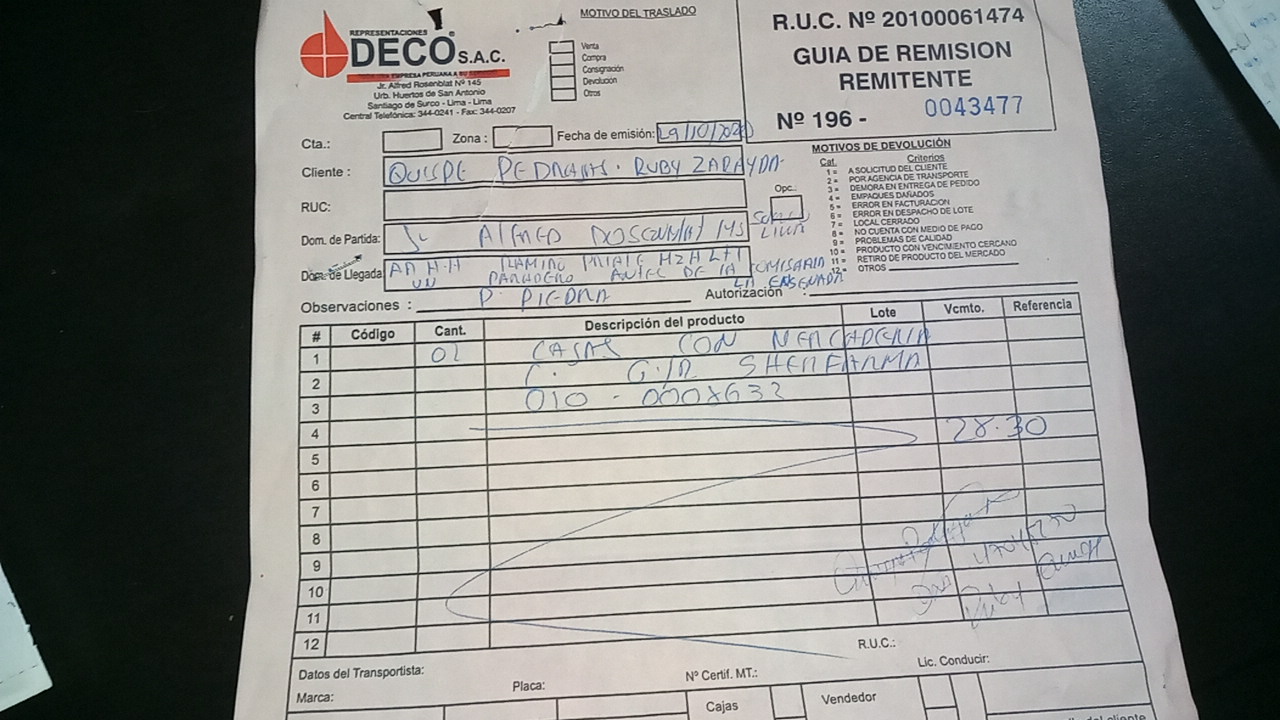 REPRESENTACIONES
DECO S.A.C.
EMPRESA PERUANA A SU
Jr. Alfred Rosenblat Nº 145
Urb. Huertos de San Antonio
Santiago de Surco - Lima - Lima
Central Telefónica: 344-0241 - Fax: 344-0207
MOTIVO DEL TRASLADO
Venta
Compra
Consignación
Devolución
Otros
R.U.C. Nº 20100061474
GUIA DE REMISION
REMITENTE
Nº 196 - 0043477
Cta.: Zona : Fecha de emisión: 29/10/2020
Cliente : QUISPE RUBY ZARAYDA
RUC:
Opc.:
Dom. de Partida: Jr 145 LIMA
Dom. de Llegada AA H.H MZ H LT 1
UN PARADERO ANTES DE LA COMISARIA LA ENSENADA
Observaciones : P. PIEDRA Autorización :
MOTIVOS DE DEVOLUCIÓN
Cat. Criterios
1 = A SOLICITUD DEL CLIENTE
2 = POR AGENCIA DE TRANSPORTE
3 = DEMORA EN ENTREGA DE PEDIDO
4 = EMPAQUES DAÑADOS
5 = ERROR EN FACTURACION
6 = ERROR EN DESPACHO DE LOTE
7 = LOCAL CERRADO
8 = NO CUENTA CON MEDIO DE PAGO
9 = PROBLEMAS DE CALIDAD
10 = PRODUCTO CON VENCIMIENTO CERCANO
11 = RETIRO DE PRODUCTO DEL MERCADO
12 = OTROS
# Código Cant. Descripción del producto Lote Vcmto. Referencia
1 02 CAJAS CON MERCADERIA
2 G/R SHERFARMA
3 010 - 0008632
4 28.30
5
6
7
8
9
10
11
12
R.U.C.:
Datos del Transportista: Nº Certif. MT.: Lic. Conducir:
Marca: Placa:
Cajas Vendedor